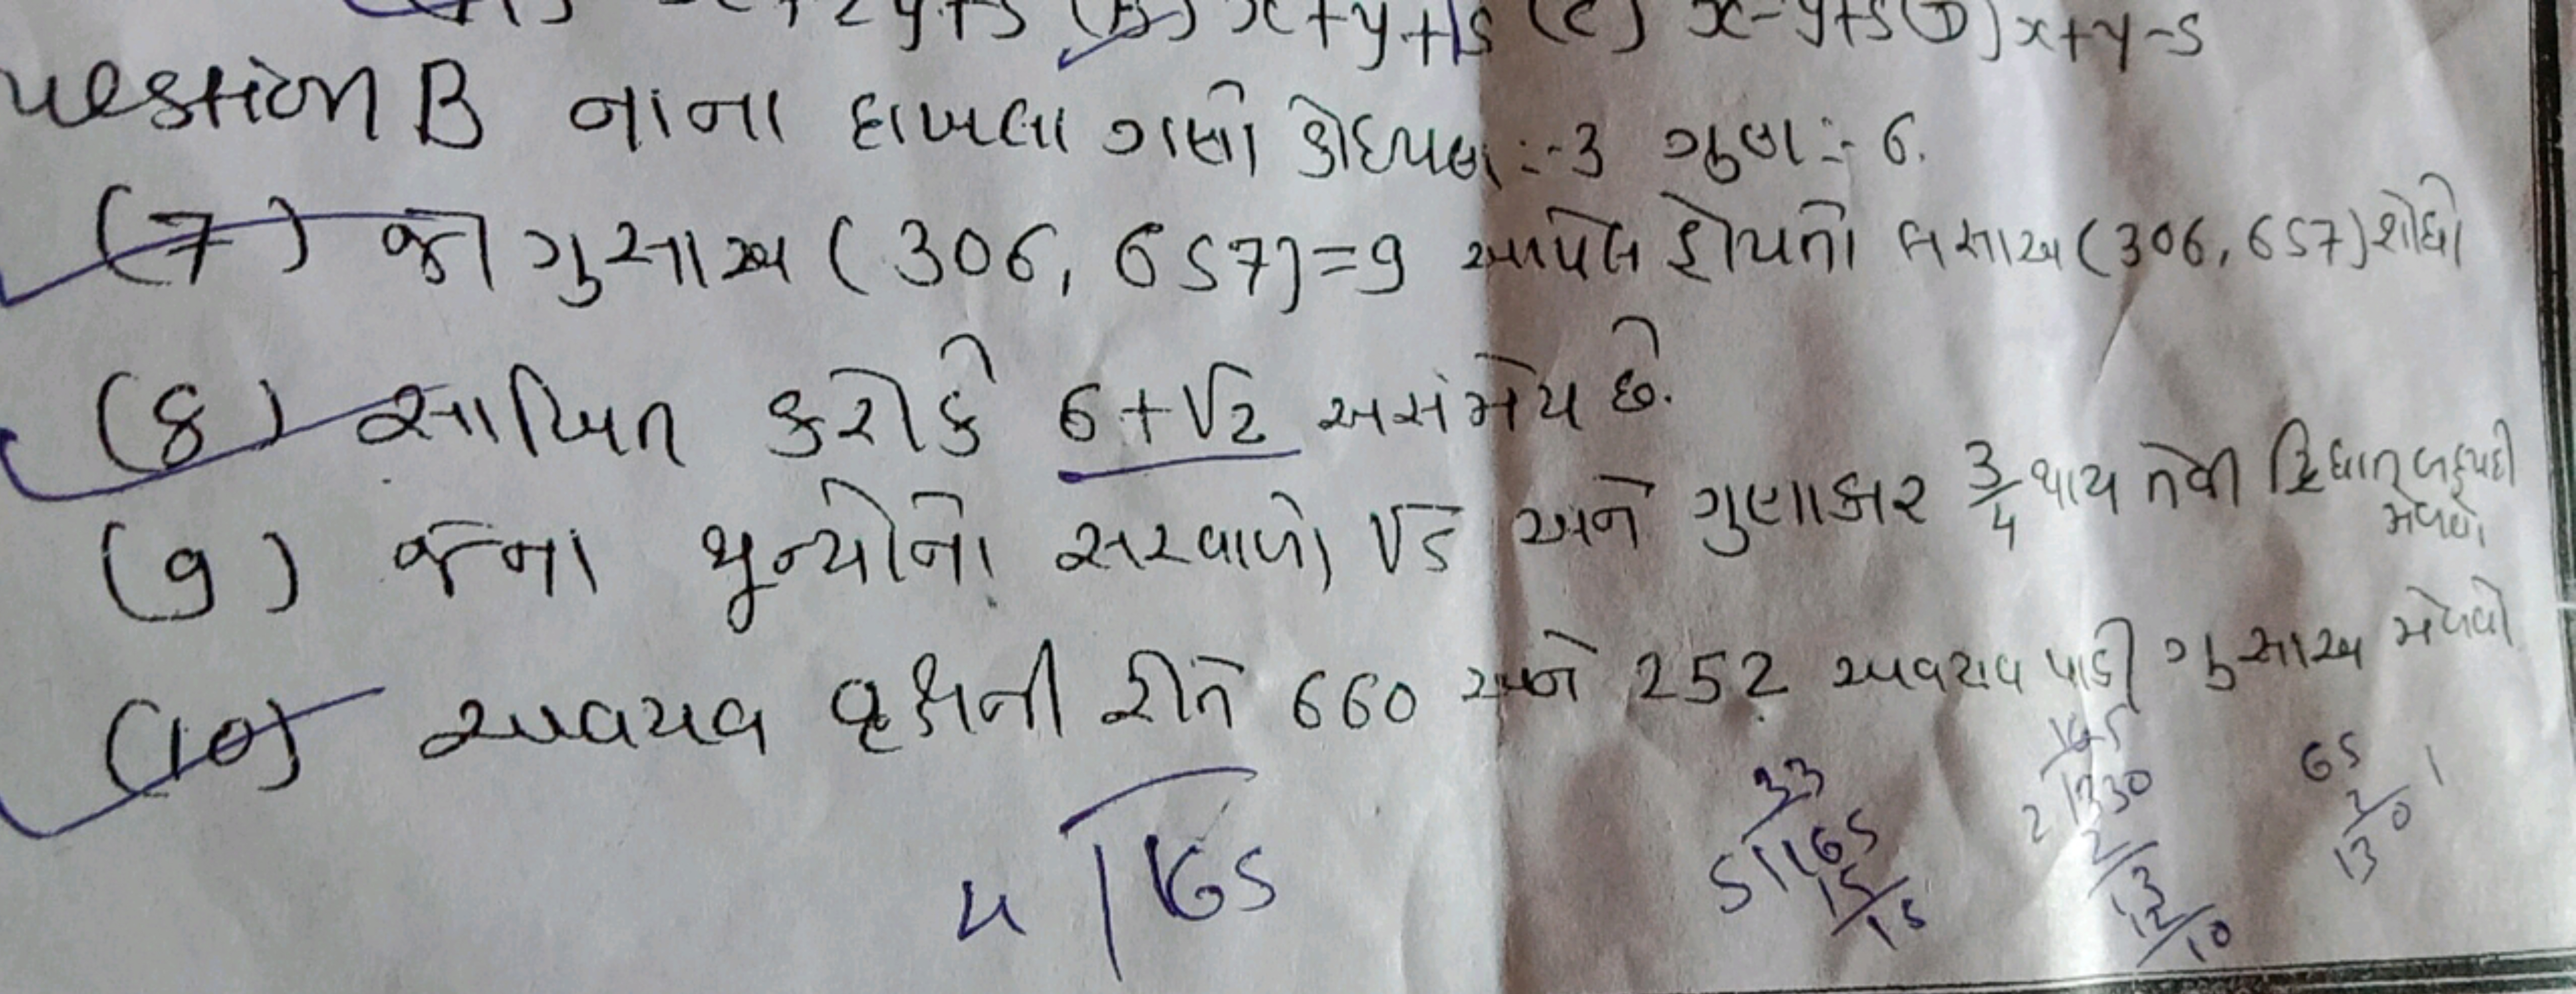 x+2y+5 (B) x+y+5 (C) x-y+5 (D) x+y-5
uestion B નાના દાખલા ગણો કોઈપણ :- 3 ગુણ :- 6.
(7) જો ગુસાઅ (306, 657) = 9 આપેલ હોયતો લસાઅ (306, 657) શોધો
(8) સાબિત કરોકે 6+√2 અસંમેય છે.
(9) જેના શૂન્યોનો સરવાળો √5 અને ગુણાકાર 3/4 થાય તેવી દ્વિઘાત બહુપદી
મેળવો
(10) અવયવ વૃક્ષની રીતે 660 અને 252 અવયવ પાડી ગુસાઅ મેળવો
165
33
5 165
15
15
165
2 330
2
13
12
10
65
2
130